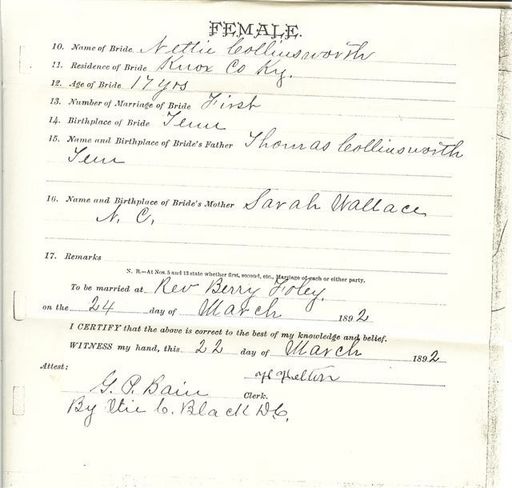 FEMALE.
10. Name of Bride Nettie Collinsworth
11. Residence of Bride Knox Co Ky.
12. Age of Bride 17 yrs
13. Number of Marriage of Bride First
14. Birthplace of Bride Tenn
15. Name and Birthplace of Bride's Father Thomas Collinsworth
Tenn
16. Name and Birthplace of Bride's Mother Sarah Wallace
N. C.
17. Remarks
N. B.—At Nos. 5 and 13 state whether first, second, etc., Marriage of each or either party.
To be married at Rev Berry Foley.
on the 24 day of March 1892
I CERTIFY that the above is correct to the best of my knowledge and belief.
WITNESS my hand, this 22 day of March 1892
Attest:
G. P. Bain Clerk.
By C. Black D.C.